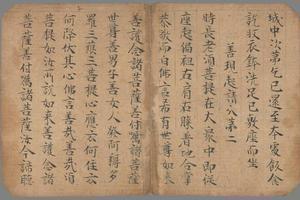 城中次第乞已還至本處飯食
訖收衣鉢洗足已敷座而坐
善現起請分第二
時長老須菩提在大眾中即從
座起偏袒右肩右膝着地合掌
恭敬而白佛言希有世尊如來
善護念諸菩薩善付囑諸菩薩
世尊善男子善女人發阿耨多
羅三藐三菩提心應云何住云
何降伏其心佛言善哉善哉須
菩提如汝所說如來善護念諸
菩薩善付囑諸菩薩汝今諦聽